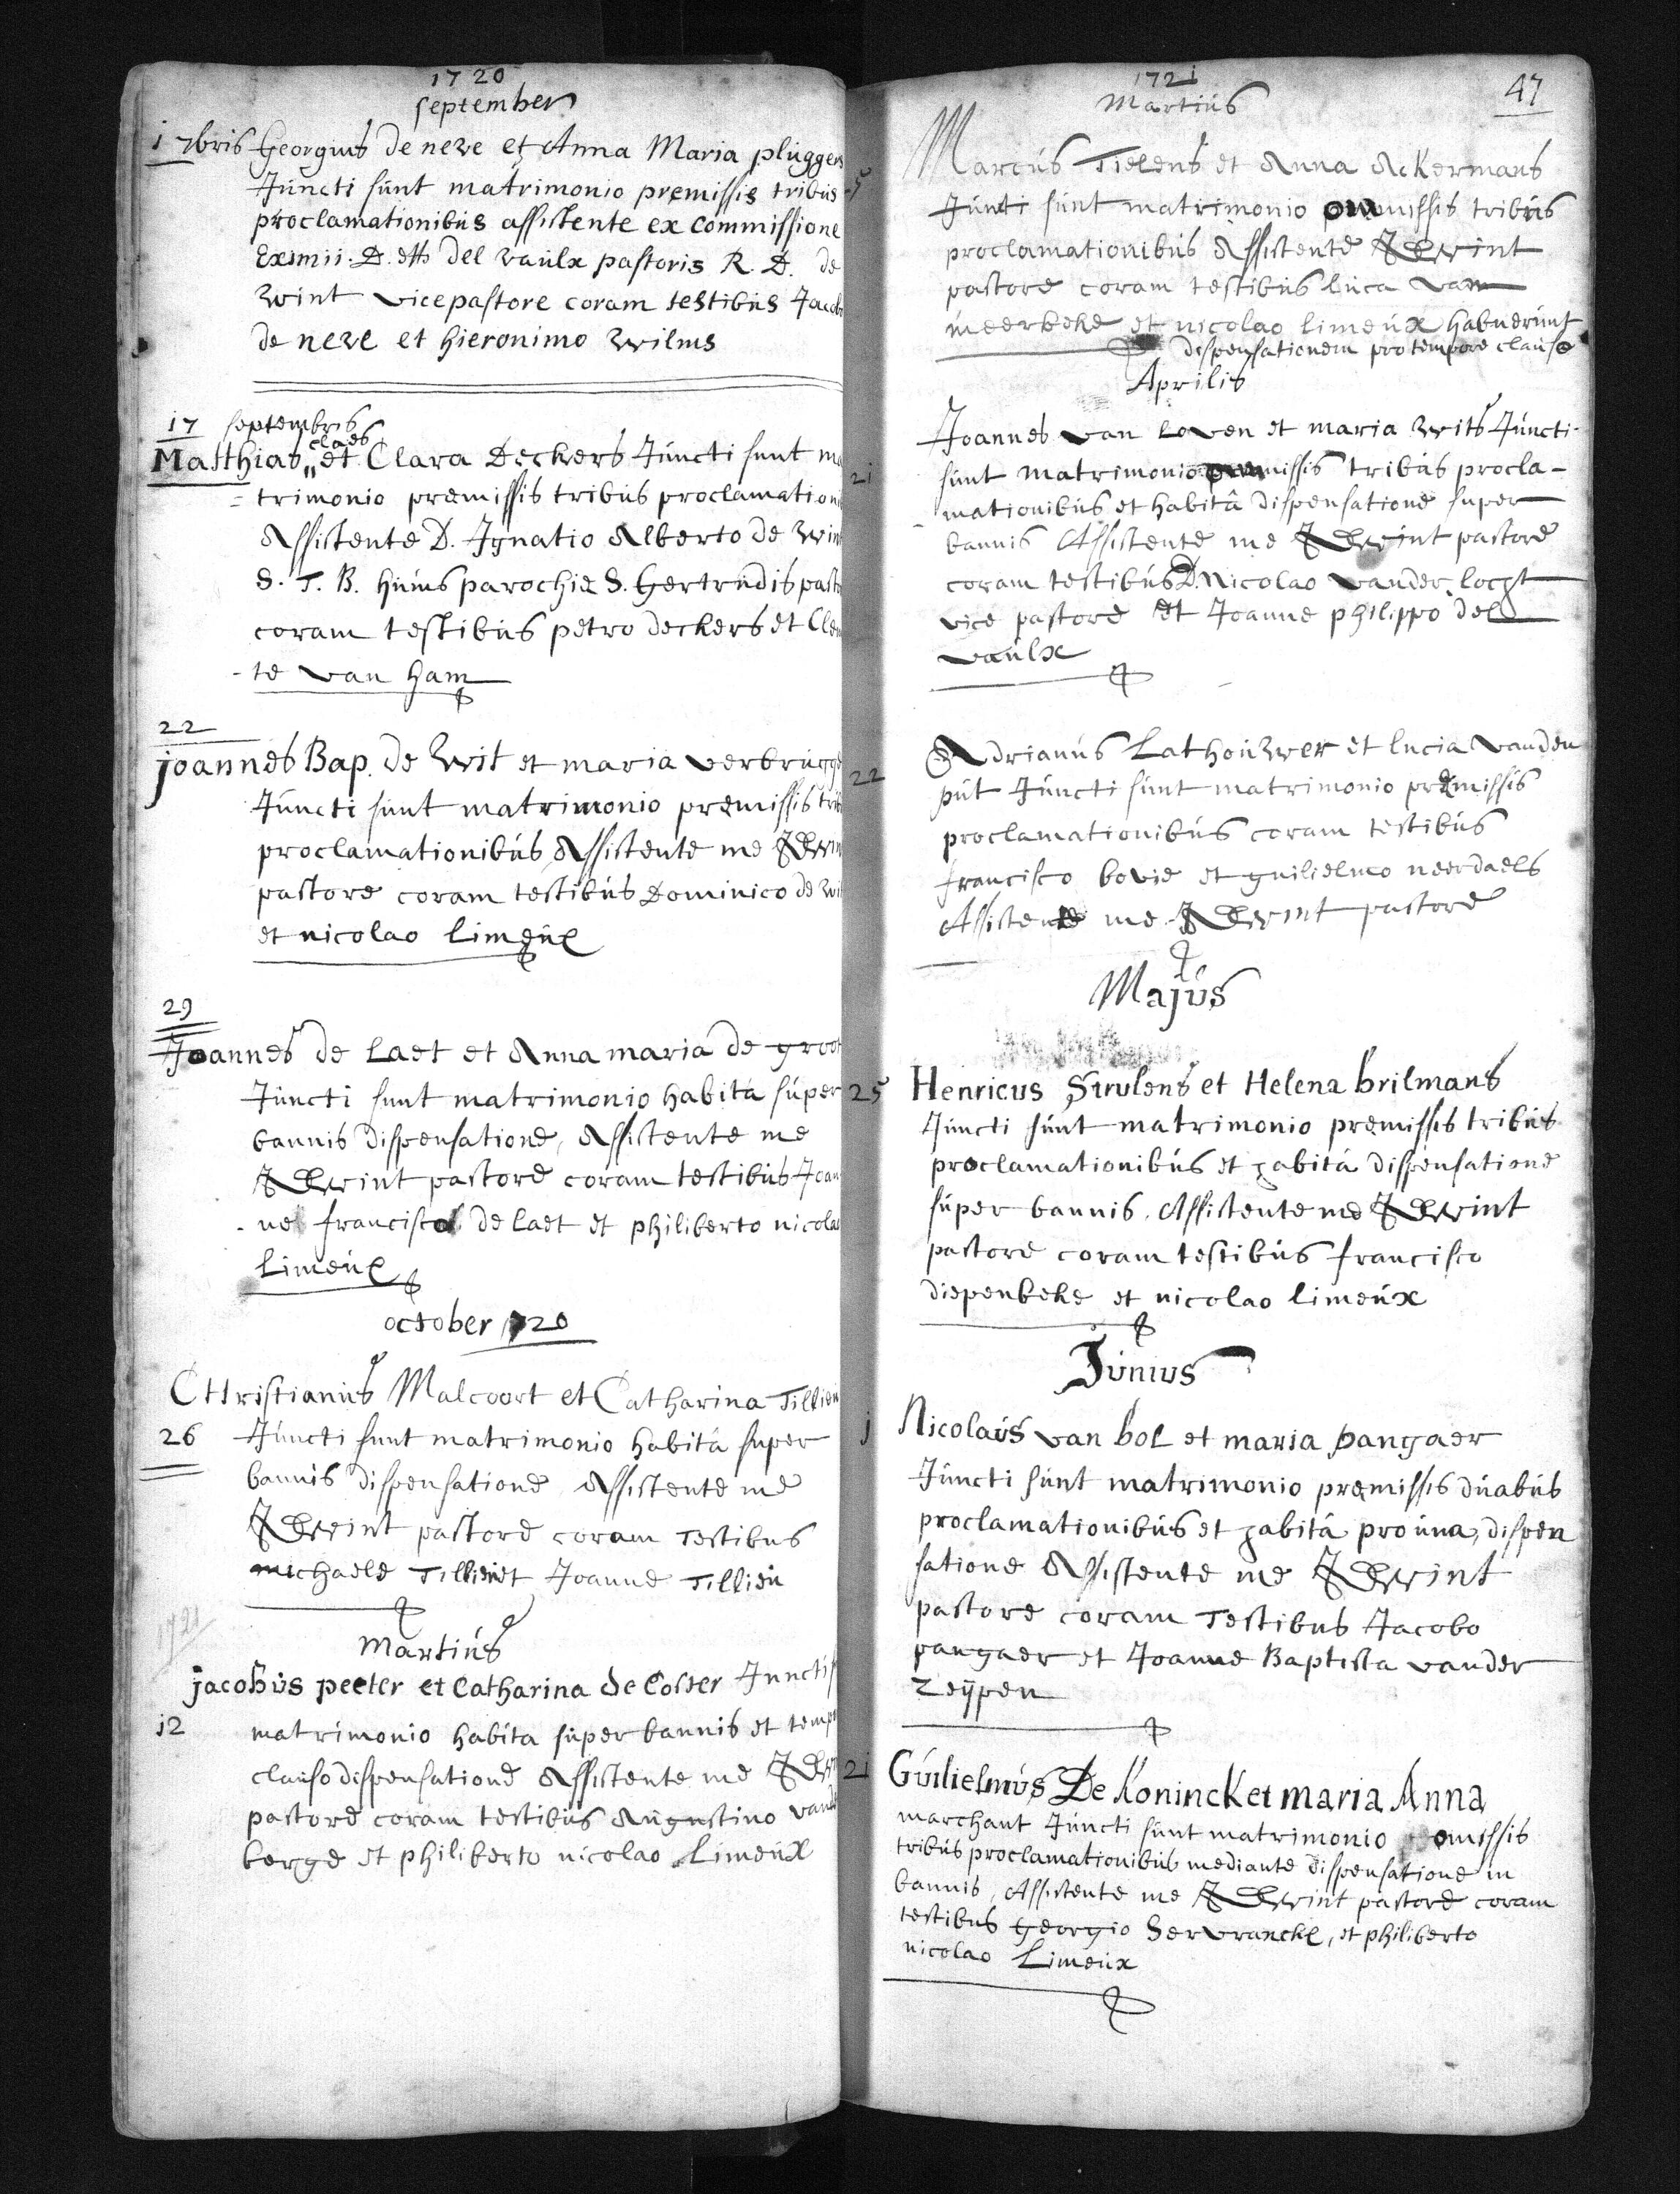 1720
september
1 7bris Georgius de neve et Anna Maria pluggers
Juncti sunt matrimonio premissis tribus
proclamationibus assistente ex commissione
Eximii. D. del vaulx pastoris R. D. de
Wint vicepastore coram testibus Jacobo
de neve et hieronimo Wilms
17 septembris
claes
Matthias et Clara Deckers Juncti sunt ma
- trimonio premissis tribus proclamation
Assistente D. Ignatio Alberto de Wint
S. T. B. huius parochiæ S. Gertrudis past
coram testibus petro deckers et Cle
- te van ham
22
joannes Bap. de Wit et maria verbrugge
Juncti sunt matrimonio premissis trib
proclamationibus Assistente me J DWint
pastore coram testibus Dominico de Wit
et nicolao limeux
29
Joannes de Laet et Anna maria de groot
Juncti sunt matrimonio habita super
bannis dispensatione, Assistente me
J DWint pastore coram testibus Joan
- ne francisco de laet et philiberto nicolao
Limeux
october 1720
CHristianus Malcoort et Catharina Tillieu
26 Juncti sunt matrimonio habitâ super
bannis dispensatione Assistente me
J DWint pastore coram Testibus
michaele Tillieu et Joanne Tillieu
1721
Martius
jacobus peeter et Catharina de Coster Juncti s
12 matrimonio habita super bannis et temp
clauso dispensatione Assistente me J DWi
pastore coram testibus Augustino vand
berge et philiberto nicolao Limeux
47
1721
Martius
Marcus Tielens et Anna Ackermans
5 Juncti sunt matrimonio premissis tribus
proclamationibus Assistente J DWint
pastore coram testibus luca van
meerbeke et nicolao limeux habuerunt
dispensationem pro tempore clauso
Aprilis
Joannes van Loven et maria Wits Juncti
21 sunt matrimonio premissis tribus procla-
- mationibus et habitâ dispensatione super
bannis Assistente me J DWint pastore
coram testibus D. Nicolao vander locht
vice pastore et Joanne philippo del
vaulx
Adrianus Lathouwer et lucia vanden
22 put Juncti sunt matrimonio premissis
proclamationibus coram testibus
francisco bovie et guilielmo neerdaels
Assistente me J DWint pastore
Majus
25 Henricus Strulens et Helena brilmans
Juncti sunt matrimonio premissis tribus
proclamationibus et habitâ dispensatione
super bannis. Assistente me J DWint
pastore coram testibus francisco
diepenbeke et nicolao limeux
Junius
j Nicolaus van bol et maria pangaer
Juncti sunt matrimonio premissis duabus
proclamationibus et habitâ pro una, dispen
satione Assistente me J DWint
pastore coram Testibus Jacobo
pangaer et Joanne Baptista vander
Zeijpen
21 Guilielmus De Koninck et maria Anna
marchant Juncti sunt matrimonio omissis
tribus proclamationibus mediante dispensatione in
bannis, Assistente me J DWint pastore coram
testibus Georgio Servranckx, et philiberto
nicolao Limeux